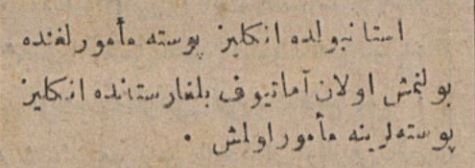 استانبولده انكليز پوسته مأمورلغنده
بولنمش اولان آماتيوف بلغارستانده انكليز
پوسته‌لرينه مأمور اولمش ٠